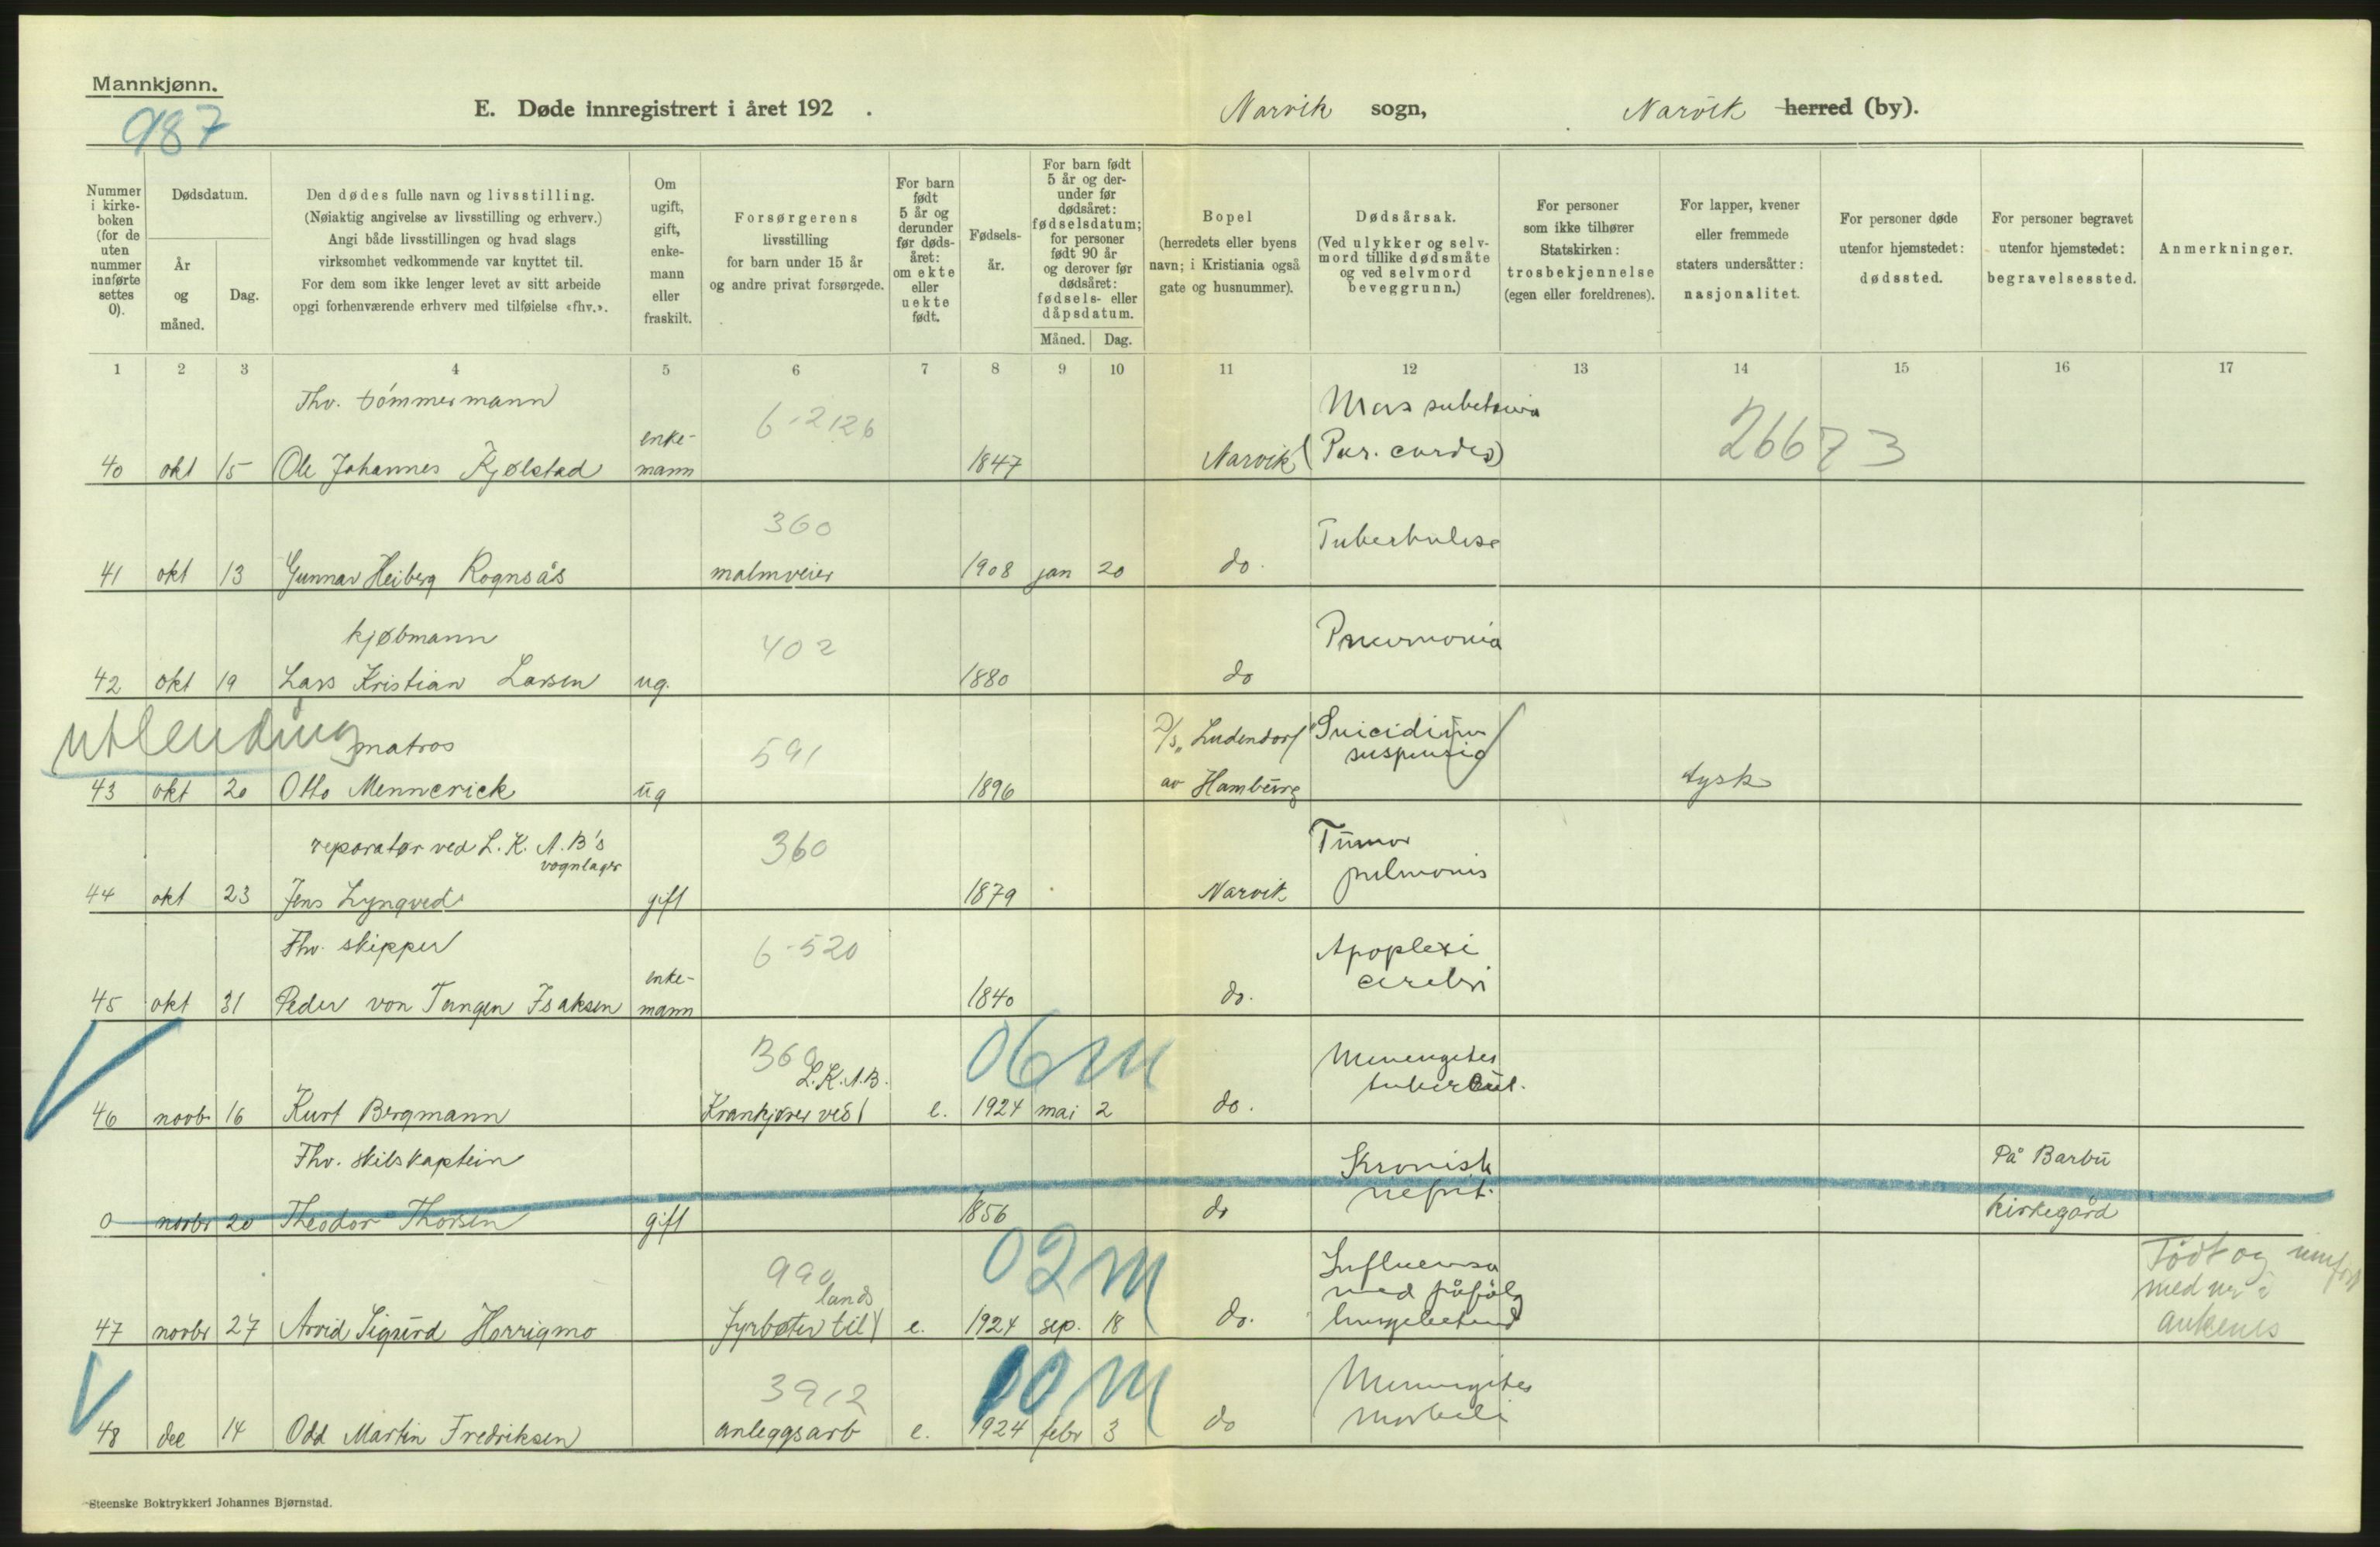 Mannkjønn.
987
E. Døde innregistrert i året 192 .
Narvik sogn,
Narvik herred (by).
Nummer i kirke-boken (for de uten nummer innførte settes 0).
Dødsdatum.
År og måned.
Dag.
Den dødes fulle navn og livsstilling.
(Nøiaktig angivelse av livsstilling og erhverv.)
Angi både livsstillingen og hvad slags
virksomhet vedkommende var knyttet til.
For dem som ikke lenger levet av sitt arbeide
opgi forhenværende erhverv med tilføielse «fhv.».
Om ugift, gift, enke-mann eller fraskilt.
Forsørgerens
livsstilling
for barn under 15 år
og andre privat forsørgede.
For barn født 5 år og derunder før døds-året: om ekte eller uekte født.
Fødsels-år.
For barn født 5 år og der-under før dødsåret: fødselsdatum; for personer født 90 år og derover før dødsåret: fødsels- eller dåpsdatum.
Måned.
Dag.
Bopel
(herredets eller byens
navn; i Kristiania også
gate og husnummer).
Dødsårsak.
(Ved ulykker og selv-
mord tillike dødsmåte
og ved selvmord
beveggrunn.)
For personer
som ikke tilhører
Statskirken:
trosbekjennelse
(egen eller foreldrenes).
For lapper, kvener
eller fremmede
staters undersåtter:
nasjonalitet.
For personer døde
utenfor hjemstedet:
dødssted.
For personer begravet
utenfor hjemstedet:
begravelsessted.
Anmerkninger.
1 2 3 4 5 6 7 8 9 10 11 12 13 14 15 16 17
Fhv. tømmermann 6-2126 Mors subetania
40 okt 15 Ole Johannes Kjølstad enke-mann 1847 Narvik (Par. cordis) 26673
360 Tuberkulose
41 okt 13 Gunnar Heiberg Rognsås malmveier 1908 jan 20 do.
kjøbmann 402 Pneumonia
42 okt 19 Lars Kristian Larsen ug. 1880 do
utlending matros 591 D/s „Ludendorf" Suicidium suspensio
43 okt 20 Otto Mennerick ug 1896 av Hamburg tysk
reparatør ved L.K.A.B's vognlager 360 Tumor pulmonis
44 okt 23 Jens Lyngved gift 1879 Narvik
Fhv. skipper 6-520 Apoplexi cerebri
45 okt 31 Peder von Tangen Isaksen enke-mann 1840 do.
360 L.K.A.B. 06 m Meningites tubercul.
46 novbr 16 Kurt Bergmann Krankjører ved e. 1924 mai 2 do.
Fhv. skibskaptein Kronisk nefrit. På Barbu
0 novbr 20 Theodor Thorsen gift 1856 do kirkegård
990 lands 02 m Influensa med påfølg Født og
47 novbr 27 Arvid Sigurd Horrigmo fyrbøter til e. 1924 sep. 18 do. med nr 2 Ankenes
3912 00 m Meningites morbili
48 dec 14 Odd Martin Fredriksen anleggsarb e. 1924 febr 3 do
Steenske Boktrykkeri Johannes Bjørnstad.